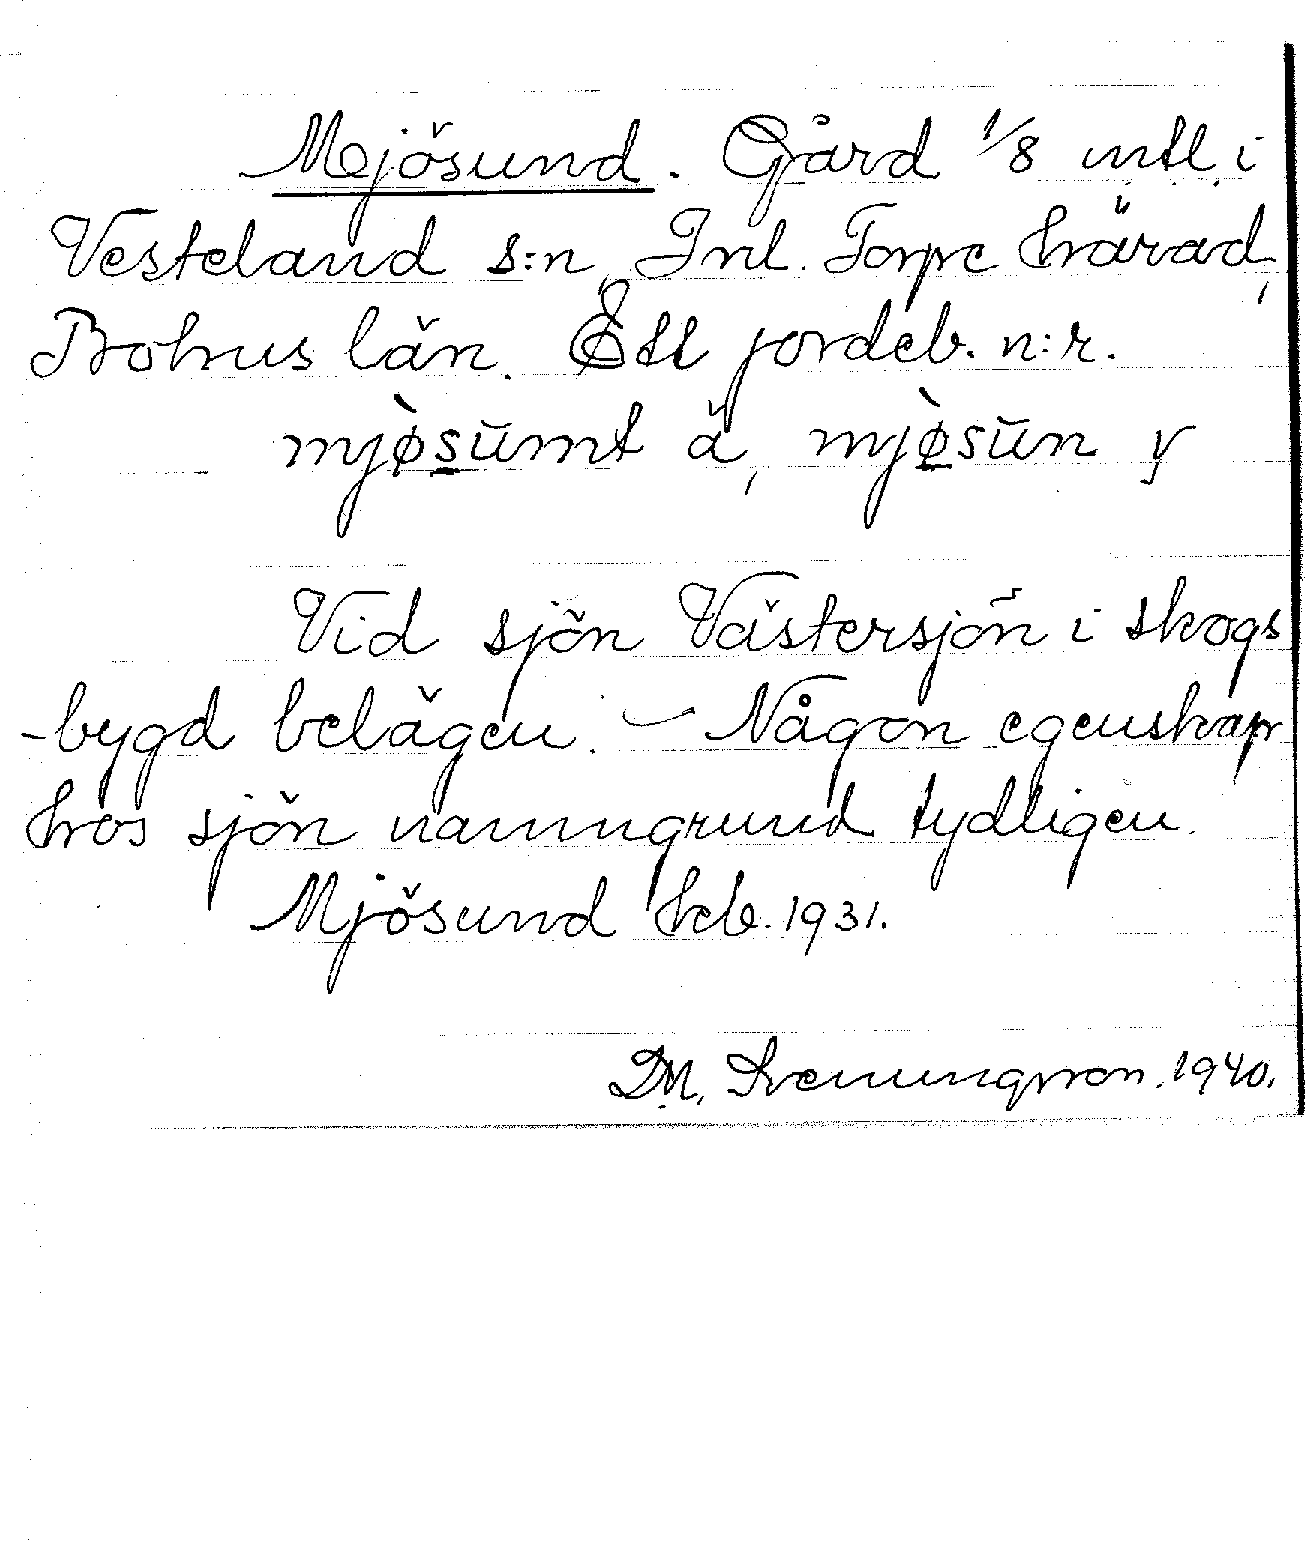 Mjösund. Gård 1/8 mtl. i
Vesteland s:n, Inl. Torpe härad,
Bohus län. Ett jordeb. n:r.
mjø̀sūmt ä, mjø̀sūn y
Vid sjön Västersjön i skogs
-bygd belägen. - Någon egenskap
hos sjön namngrund tydligen.
Mjösund Jeb. 1931.
D.M. Svenungsson. 1940.